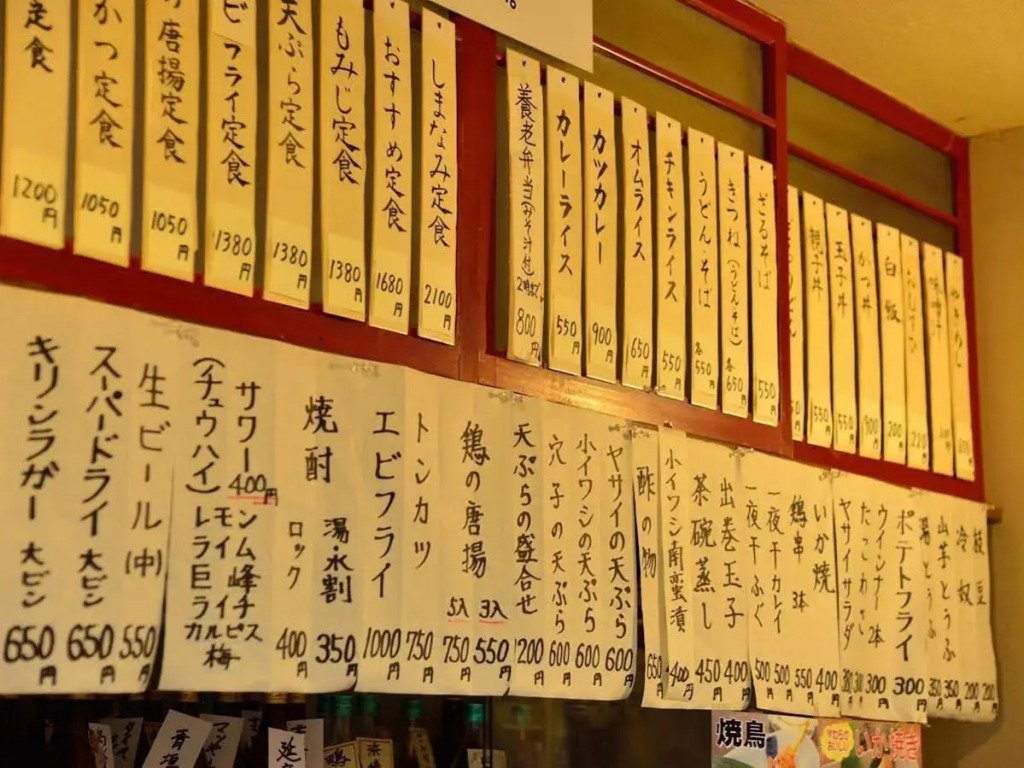 定食 1200円
かつ定食 1050円
唐揚定食 1050円
ビフライ定食 1380円
天ぷら定食 1380円
もみじ定食 1380円
おすすめ定食 1680円
しまなみ定食 2100円
養老弁当(みそ汁付) 800円
カレーライス 550円
カツカレー 900円
オムライス 650円
チキンライス 550円
うどん・そば 各550円
きつね(うどん・そば) 各650円
ざるそば 550円
親子丼 550円
玉子丼 550円
かつ丼 900円
白飯 200円
キリンラガー 大ビン 650円
スーパードライ 大ビン 650円
生ビール(中) 550円
サワー 400円
(チュウハイ)
レモン
ライム
巨峰
ライチ
カルピス
梅
焼酎
ロック 400円
湯・水割 350円
エビフライ 1000円
トンカツ 750円
鶏の唐揚
5入 750円
3入 550円
天ぷらの盛合せ 1200円
穴子の天ぷら 600円
小イワシの天ぷら 600円
ヤサイの天ぷら 600円
酢の物 650円
小イワシ南蛮漬 400円
茶碗蒸し 450円
出巻玉子 400円
一夜干ふぐ 500円
一夜干カレイ 500円
鶏串 3本 550円
いか焼 400円
ヤサイサラダ
たこわさ
ウインナー 2本 300円
ポテトフライ 300円
湯とうふ 350円
山芋とうふ 350円
冷奴 200円
枝豆 200円
焼鳥